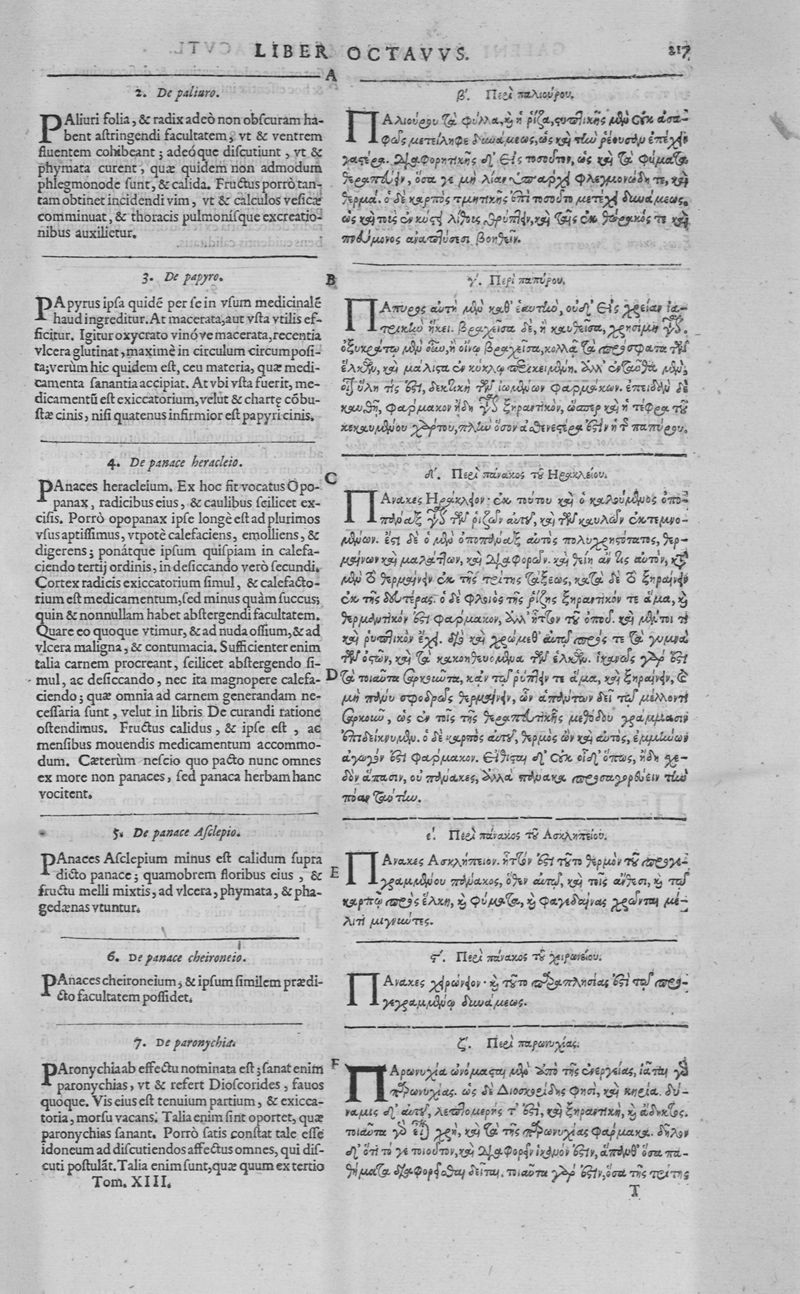 LIBER OCTAVVS.
217
A
2. De paliuro.
PAliuri folia, & radix adeò non obscuram ha-
bent astringendi facultatem, vt & ventrem
fluentem cohibeant; adeóque discutiunt, vt &
phymata curent, quæ quidem non admodum
phlegmonode sunt, & calida. Fructus porrò tan-
tam obtinet incidendi vim, vt & calculos vesicæ
comminuat, & thoracis pulmonisque excreatio-
nibus auxilietur.
3. De papyro.
PApyrus ipsa quidē per se in vsum medicinalē
haud ingreditur. At macerata, aut vsta vtilis ef-
ficitur. Igitur oxycrato vinóve macerata, recentia
vlcera glutinat, maximè in circulum circumposi-
ta; verùm hic quidem est, ceu materia, quæ medi-
camenta sanantia accipiat. At vbi vsta fuerit, me-
dicamentū est exiccatorium, velut & chartę cōbu-
stæ cinis, nisi quatenus infirmior est papyri cinis.
4. De panace heracleio.
PAnaces heracleium. Ex hoc fit vocatus Opo-
panax, radicibus eius, & caulibus scilicet ex-
cisis. Porrò opopanax ipse longè est ad plurimos
vsus aptissimus, vtpotè calefaciens, emolliens, &
digerens; ponátque ipsum quispiam in calefa-
ciendo tertij ordinis, in desiccando verò secundi.
Cortex radicis exiccatorium simul, & calefacto-
rium est medicamentum, sed minus quàm succus;
quin & nonnullam habet abstergendi facultatem.
Quare eo quoque vtimur, & ad nuda ossium, & ad
vlcera maligna, & contumacia. Sufficienter enim
talia carnem procreant, scilicet abstergendo si-
mul, ac desiccando, nec ita magnopere calefa-
ciendo; quæ omnia ad carnem generandam ne-
cessaria sunt, velut in libris De curandi ratione
ostendimus. Fructus calidus, & ipse est, ac
mensibus mouendis medicamentum accommo-
dum. Cæterùm nescio quo pacto nunc omnes
ex more non panaces, sed panaca herbam hanc
vocitent.
5. De panace Asclepio.
PAnaces Asclepium minus est calidum supra
dicto panace; quamobrem floribus eius, &
fructu melli mixtis, ad vlcera, phymata, & pha-
gedænas vtuntur.
6. De panace cheironeio.
PAnaces cheironeium, & ipsum similem prædi-
cto facultatem possidet.
7. De paronychia.
PARonychia ab effectu nominata est; sanat enim
paronychias, vt & refert Dioscorides, fauos
quoque. Vis eius est tenuium partium, & exicca-
toria, morsu vacans. Talia enim sint oportet, quæ
paronychias sanant. Porrò satis constat tale esse
idoneum ad discutiendos affectus omnes, qui dis-
cuti postulāt. Talia enim sunt, quæ quum ex tertio
Tom. XIII.
B
C
D
E
F
β΄. Περὶ παλιούρου.
ΠΑλιούρου τὰ φύλλα, καὶ ἡ ῥίζα, στυπτικῆς μὲν οὐκ ἀσα-
φῶς μετείληφε δυνάμεως, ὡς καὶ τὴν ῥέουσαν ἐπέχειν
γαστέρα. διαφορητικῆς δ' εἰς τοσοῦτον, ὡς καὶ τὰ φύματα
θεραπεύειν, ὅσα γε μὴ λίαν ὑπάρχῃ φλεγμονώδη τε, καὶ
θερμά. ὁ δὲ καρπὸς τμητικῆς ἐπὶ τοσοῦτο μετέχει δυνάμεως,
ὡς καὶ τοὺς ἐν κύστει λίθους θρύπτειν, καὶ ταῖς ἐκ θώρακός τε καὶ
πνεύμονος ἀναπτύσεσι βοηθεῖν.
γ΄. Περὶ παπύρου.
ΠΑπυρος αὐτὴ μὲν καθ' ἑαυτὴν, οὐδ' εἰς χρείαν ἰα-
τρικὴν ἥκει. βραχεῖσα δὲ, ἢ καυθεῖσα, χρησίμη γίνεται.
ὀξυκράτῳ μὲν οὖν, ἢ οἴνῳ βραχεῖσα, κολλᾷ τὰ πρόσφατα τῶν
ἑλκῶν, καὶ μάλιστα ἐν κύκλῳ περικειμένη. ἀλλ' ἐνταῦθα μὲν,
οἷον ὕλη τίς ἐστι, δεκτικὴ τῶν ἰωμένων φαρμάκων. ἐπειδὰν δὲ
καυθῇ, φάρμακον ἤδη γίνεται ξηραντικὸν, ὥσπερ καὶ ἡ τέφρα τοῦ
κεκαυμένου χάρτου, πλὴν ὅσον ἀσθενεστέρα ἐστὶν ἡ τοῦ παπύρου.
δ΄. Περὶ πάνακος τοῦ Ηρακλείου.
ΠΑνακες Ηράκλειον· ἐκ τούτου καὶ ὁ καλούμενος ὀπο-
πάναξ γίνεται τῶν ῥιζῶν αὐτοῦ, καὶ τῶν καυλῶν ἐκτεμνο-
μένων. ἔστι δὲ ὁ μὲν ὀποπάναξ αὐτὸς πολυχρηστότατος, θερ-
μαίνων καὶ μαλάττων, καὶ διαφορῶν. καὶ θείη ἄν τις αὐτὸν, κατὰ
μὲν τὸ θερμαίνειν ἐκ τῆς τρίτης τάξεως, κατὰ δὲ τὸ ξηραίνειν
ἐκ τῆς δευτέρας. ὁ δὲ φλοιὸς τῆς ῥίζης ξηραντικόν τε ἅμα, καὶ
θερμαντικόν ἐστι φάρμακον, ἀλλ' ἧττον τοῦ ὀποῦ. καὶ μέντοι τι
καὶ ῥυπτικὸν ἔχει. διὸ καὶ χρώμεθ' αὐτῷ πρός τε τὰ γυμνὰ
τῶν ὀστῶν, καὶ τὰ κακοηθευόμενα τῶν ἑλκῶν. ἱκανῶς γὰρ ἐστὶ
τὰ τοιαῦτα σαρκοῦντα, κἀν τῷ ῥύπτειν τε ἅμα, καὶ ξηραίνειν, καὶ
μὴ πάνυ σφοδρῶς θερμαίνειν, ὧν ἁπάντων δεῖ τῷ μέλλοντι
σαρκοῦν, ὡς ἐν τοῖς τῆς θεραπευτικῆς μεθόδου γράμμασιν
ἐπιδείκνυμεν. ὁ δὲ καρπὸς αὐτοῦ, θερμὸς ὢν καὶ αὐτὸς, ἐμμήνων
ἀγωγόν ἐστι φάρμακον. εἴθισται δ' οὐκ οἶδ' ὅπως, ἤδη σχε-
δὸν ἅπασιν, οὐ πάνακες, ἀλλὰ πάνακα προσαγορεύειν τὴν
πόαν ταύτην.
ε΄. Περὶ πάνακος τοῦ Ασκληπείου.
ΠΑνακες Ασκλήπειον. ἧττόν ἐστι τοῦτο θερμὸν τοῦ προγε-
γραμμένου πάνακος, ὅθεν αὐτοῦ, καὶ τοῖς ἄνθεσι, καὶ τῷ
καρπῷ πρὸς ἕλκη, καὶ φύματα, καὶ φαγεδαίνας χρῶνται μέ-
λιτι μιγνύντες.
ϛ΄. Περὶ πάνακος τοῦ χειρωνείου.
ΠΑνακες χειρώνειον· καὶ τοῦτο παραπλησίας ἐστὶ τῷ προ-
γεγραμμένῳ δυνάμεως.
ζ΄. Περὶ παρωνυχίας.
ΠΑρωνυχία ὠνόμασται μὲν ἀπὸ τῆς ἐνεργείας, ἰᾶται γὰρ
παρωνυχίας. ὡς δὲ Διοσκορίδης φησὶ, καὶ κηρία. δύ-
ναμις δ' αὐτοῦ, λεπτομερής τ' ἐστὶ, καὶ ξηραντικὴ, καὶ ἄδηκτος.
τοιαῦτα γὰρ εἶναι χρὴ, καὶ τὰ τῆς παρωνυχίας φάρμακα. δῆλον
δ' ὅτι τό γε τοιοῦτον, καὶ διαφορεῖν ἱκανόν ἐστιν, ἅπανθ' ὅσα πα-
θήματα διαφορεῖσθαι δεῖται. τοιαῦτα γάρ ἐστιν, ὅσα τῆς τρίτης
T